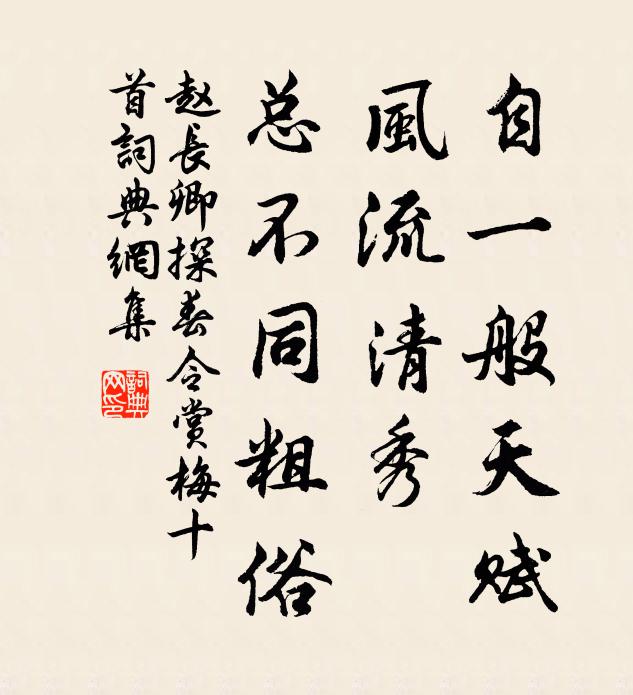 自一般天赋
風流清秀
总不同粗俗
赵長卿探春令赏梅十
首詞典網集
詞典
网印